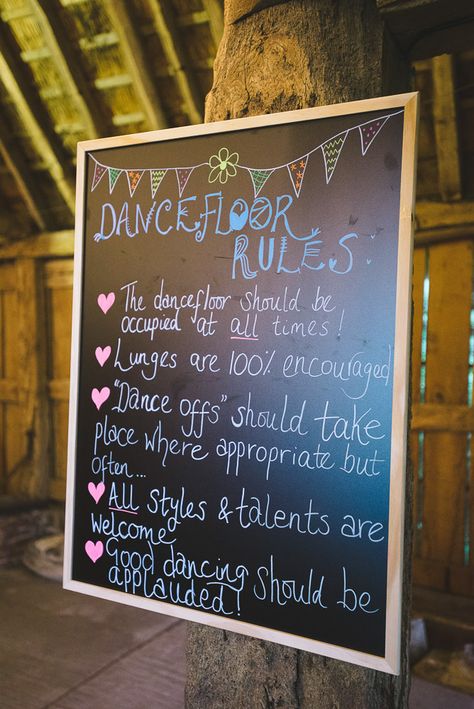 DANCEFLOOR
RULES
The dancefloor should be
occupied at all times!
Lunges are 100% encouraged
"Dance offs" should take
place where appropriate but
often...
ALL styles & talents are
welcome
Good dancing should be
applauded!